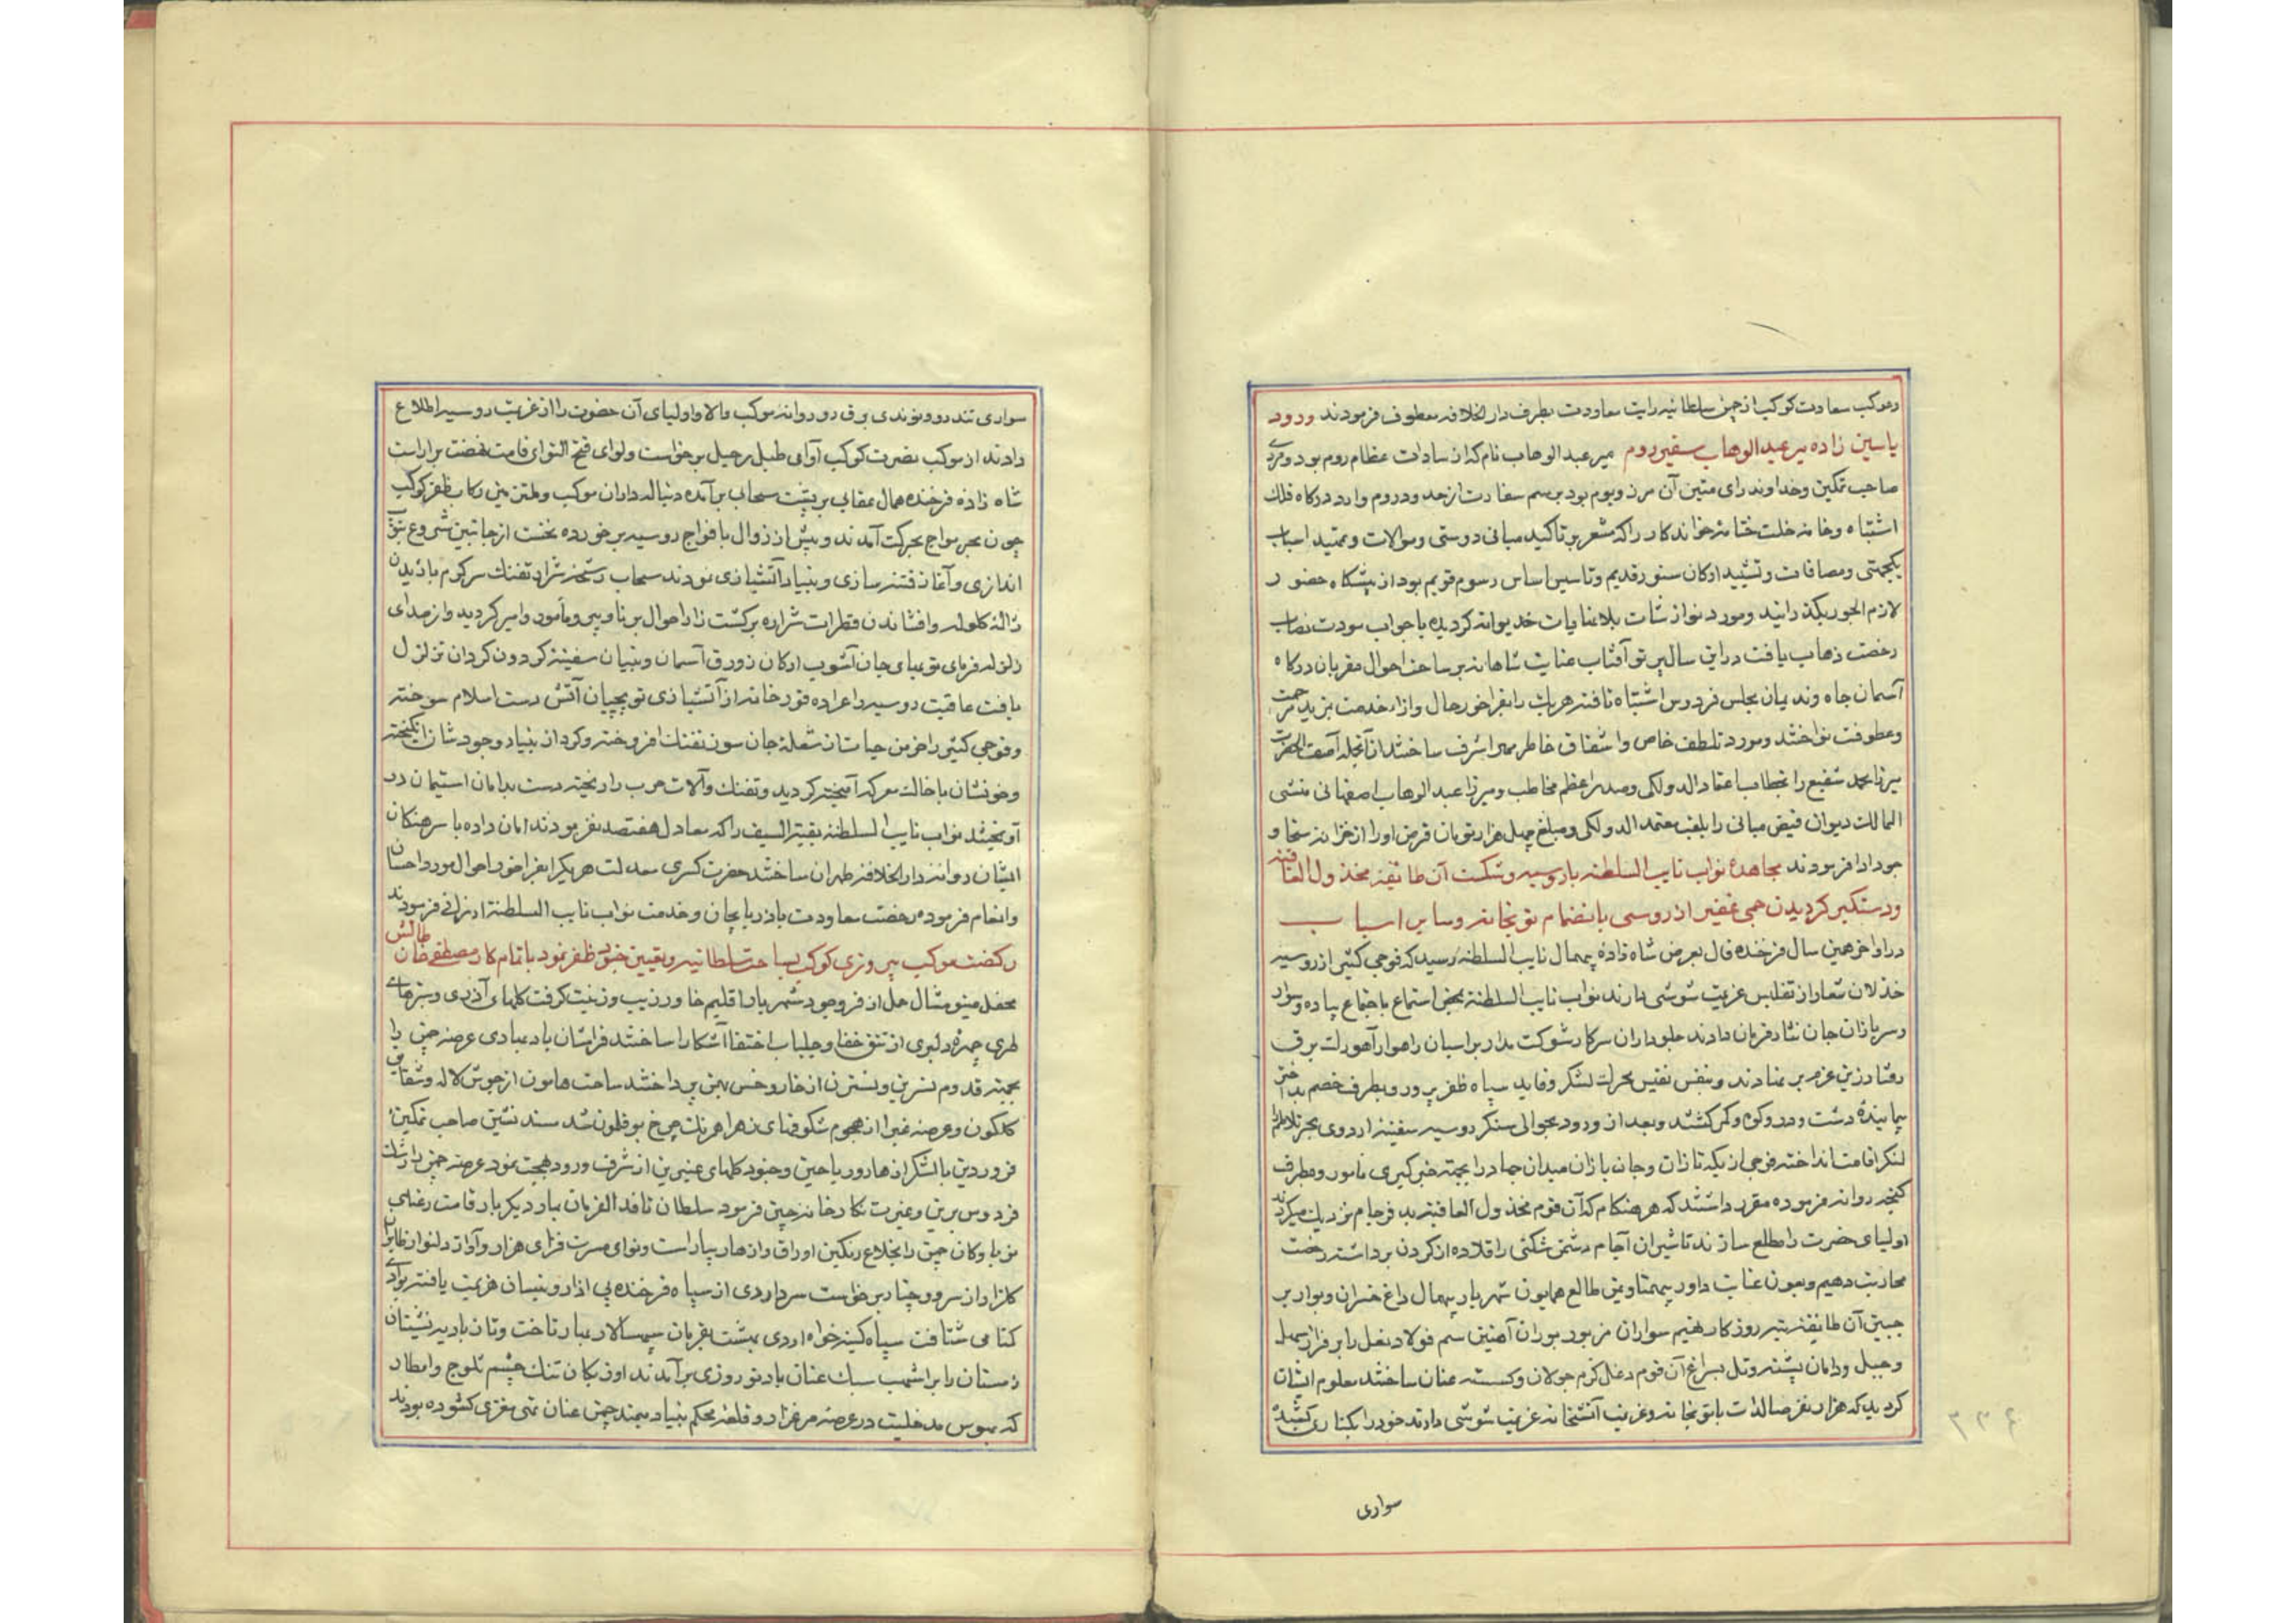 و موکب سعادت کوکب از چمن سلطانیه رایت معاودت بطرف دارالخلافه معطوف فرمودند ورود
یاسین زاده میر عبدالوهاب سفیر روم میر عبدالوهاب نام که از سادات عظام روم بود و مردی
صاحب تمکین و خداوند رای متین آن مرز و بوم بود برسم سفارت از حد و در روم وارد درکاه فلک
اشتباه و خامه خلت ختامهٔ خواندکار را که مشعر بر تاکید مبانی دوستی و موالات و تمهید اسباب
یکجهتی و مصافات و تشیید ارکان سنور قدیم و تاسیس اساس رسوم قویم بود از پیشکاه حضور
لازم الحور بگذرانید و مورد نوازشات بلاغایات خدیوانه کردیده با جواب مودت نصاب
رخصت ذهاب یافت در این سال پرتو آفتاب عنایت شاهانه بر ساحت احوال مقربان درکاه
آسمان جاه و ندیمان مجلس فردوس اشتباه تافته هریک را بفراخور حال و ازاء خدمت بمزید مرحمت
و عطوفت نواختند و مورد تلطف خاص و اشفاق خاطر مهر اشرف ساختند از آنجمله آصف الحضرت
میرزا محمد شفیع را بخطاب اعتماد الدولکی و صدر اعظم مخاطب و میرزا عبدالوهاب اصفهانی منشی
الممالک دیوان فیض مبانی را بلقب معتمد الدولکی و مبلغ چهل هزار تومان قرض او را از خزانه سخا و
جود ادا فرمودند مجاهدهٔ نواب نایب السلطنه با روسیه و شکست آن طایفهٔ مخذول العاقبه
و دستکیر کردیدن جمی غفیر از روسی بانضمام توپخانه و سایر اسباب
در اواخر همین سال فرخنده فال بعرض شاه زادهٔ بیهمال نایب السلطنه رسید که فوجی کثیر از روسیه
خذلان شعار از تفلیس عزیمت شوشی دارند نواب نایب السلطنة بمحض استماع باجتماع پیاده و سوار
و سربازان جان نثار فرمان دادند جلوداران سرکار شوکت مدار بر اسبان راهوار آهورک برق
رفتار زین عزم بر نهادند و بنفس نفیس بحرکت لشکر و قاید سپاه ظفر پرور و بطرف خصم بد اختر
پیمایندهٔ دشت و در و کوه و کمر کشتند و بعد از ورود بحوالی سنکر روسیه سفینه اردوی بحر تلاطم را
لنکر اقامت انداخته فوجی از یکه تازان و جان بازان میدان جهاد را بجهته خبرکیری مامور و بطرف
کنجه روانه فرموده مقرر داشتند که هر هنکام که آن قوم مخذول العاقبه بد فرجام نزدیک میکردند
اولیای حضرت را مطلع سازند تا شیران آجام دشمن شکنی را قلاده از کردن برداشته رخصت
محاربت دهیم و بعون عنایت داور بیهمتا و یمن طالع همایون شهریار بیهمال داغ خسران و بوار بر
جبین آن طایفهٔ تیره روزکار نهیم سواران مزبور بوران آهنین سم فولاد نعل را بر فراز سهل
و جبل و دامان پشته و تل بسراغ آن قوم دغل کرم جولان و کسسته عنان ساختند معلوم ایشان
کردید که هزار نفر صالدات با توپخانه و غریب آتشخانه عزیمت شوشی دارند خود را بکناری کشیده
سواری
سواری تندرو و نوندی برق دو روانهٔ موکب والا و اولیای آن حضرت را از عزیمت روسیه اطلاع
دادند از موکب نصرت کوکب آوای طبل رحیل برخواست و لوای فتح التوای قامت نهضت برآراست
شاه زادهٔ فرخنده همال عقابی بر پشت سحابی برآمده دنباله داران موکب و ملتزمین رکاب ظفر کوکب
چون بحر مواج بحرکت آمدند و پیش از زوال با افواج روسیه برخورده نخست از جانبین شروع بتوپ
اندازی و آغاز فتنه سازی و بنیاد آتشبازی نمودند سحاب رستخیز شرار تفنک سرکرم باریدن
ژالهٔ کلوله و افشاندن قطرات شراره برکشت زار احوال برنا و پیر و مأمور و امیر کردید و از صدای
زلزله فرمای توپهای جان آشوب ارکان زورق آسمان و بنیان سفینهٔ کردون کردان تزلزل
یافت عاقبت روسیه را عراده قورخانه از آتشبازی توپچیان آتش دست اسلام سوخته
و فوجی کثیر را خرمن حیات از شعلهٔ جان سوز تفنک افروخته و کرد از بنیاد وجودشان انکیخته
و خونشان با خاک معرکه آمیخته کردید و تفنک و آلات حرب را ریخته دست بدامان استیمان در
آویختند نواب نایب السلطنه بقیة السیف را که معادل هفتصد نفر بودند امان داده با سرهنکان
ایشان روانه دارالخلافه طهران ساختند حضرت کسری معدلت هر یکرا بفراخور احوال مورد احسان
و انعام فرموده رخصت معاودت باذربایجان و خدمت نواب نایب السلطنة ارزانی فرمودند
رکضت موکب پیروزی کوکب بساحت سلطانیه و تعیین جیوش ظفر نمود باتمام کار مصطفی خان طالش
محفل مینو مثال حمل از فر وجود شهریار اقلیم خاور زیب و زینت کرفت کلهای آذری و سبزهای
طری چهرهٔ دلبری از تتق خفا و جلباب اختفا آشکارا ساختند فراشان باد بهاری عرصه چمن را
بجهته قدوم نسرین و نسترن از خار و خس بهمن پرداختند ساحت هامون از جوش لاله و شقایق
کلکون و عرصه غبرا از هجوم شکوفهای زهرا همرنک چرخ بوقلمون شد مسند نشین صاحب تمکین
فروردین با لشکر ازهار و ریاحین و جنود کلهای عنبرین از شرف ورود بهجت نمود عرصه چمن را رشک
فردوس برین و غیرت نکارخانه چین فرمود سلطان نافذ الفرمان بهار دیکر بار قامت رعنای
نوباوکان چمن را بخلاع رنکین اوراق و ازهار بیاراست و نوای مسرت فزای هزار و آواز دلنواز طایران
کلزار از سرو و چنار برخواست سرداردی از سپاه فرخنده پی آذار و نیسان هزیمت یافته بوادی
کمنامی شتافت سپاه کینه خواه اردی بهشت بفرمان سپهسالار بهار تاخت و تاز بادیه نشینان
زمستان را بر اشهب سبک عنان باد نوروزی برآمدند اوزبکان تنک چشم ثلوج و امطار
که بهوس مدخلیت در عرصه مرغزار و قلعه محکم بنیاد چمن عنان تهی مغزی کشوده بودند